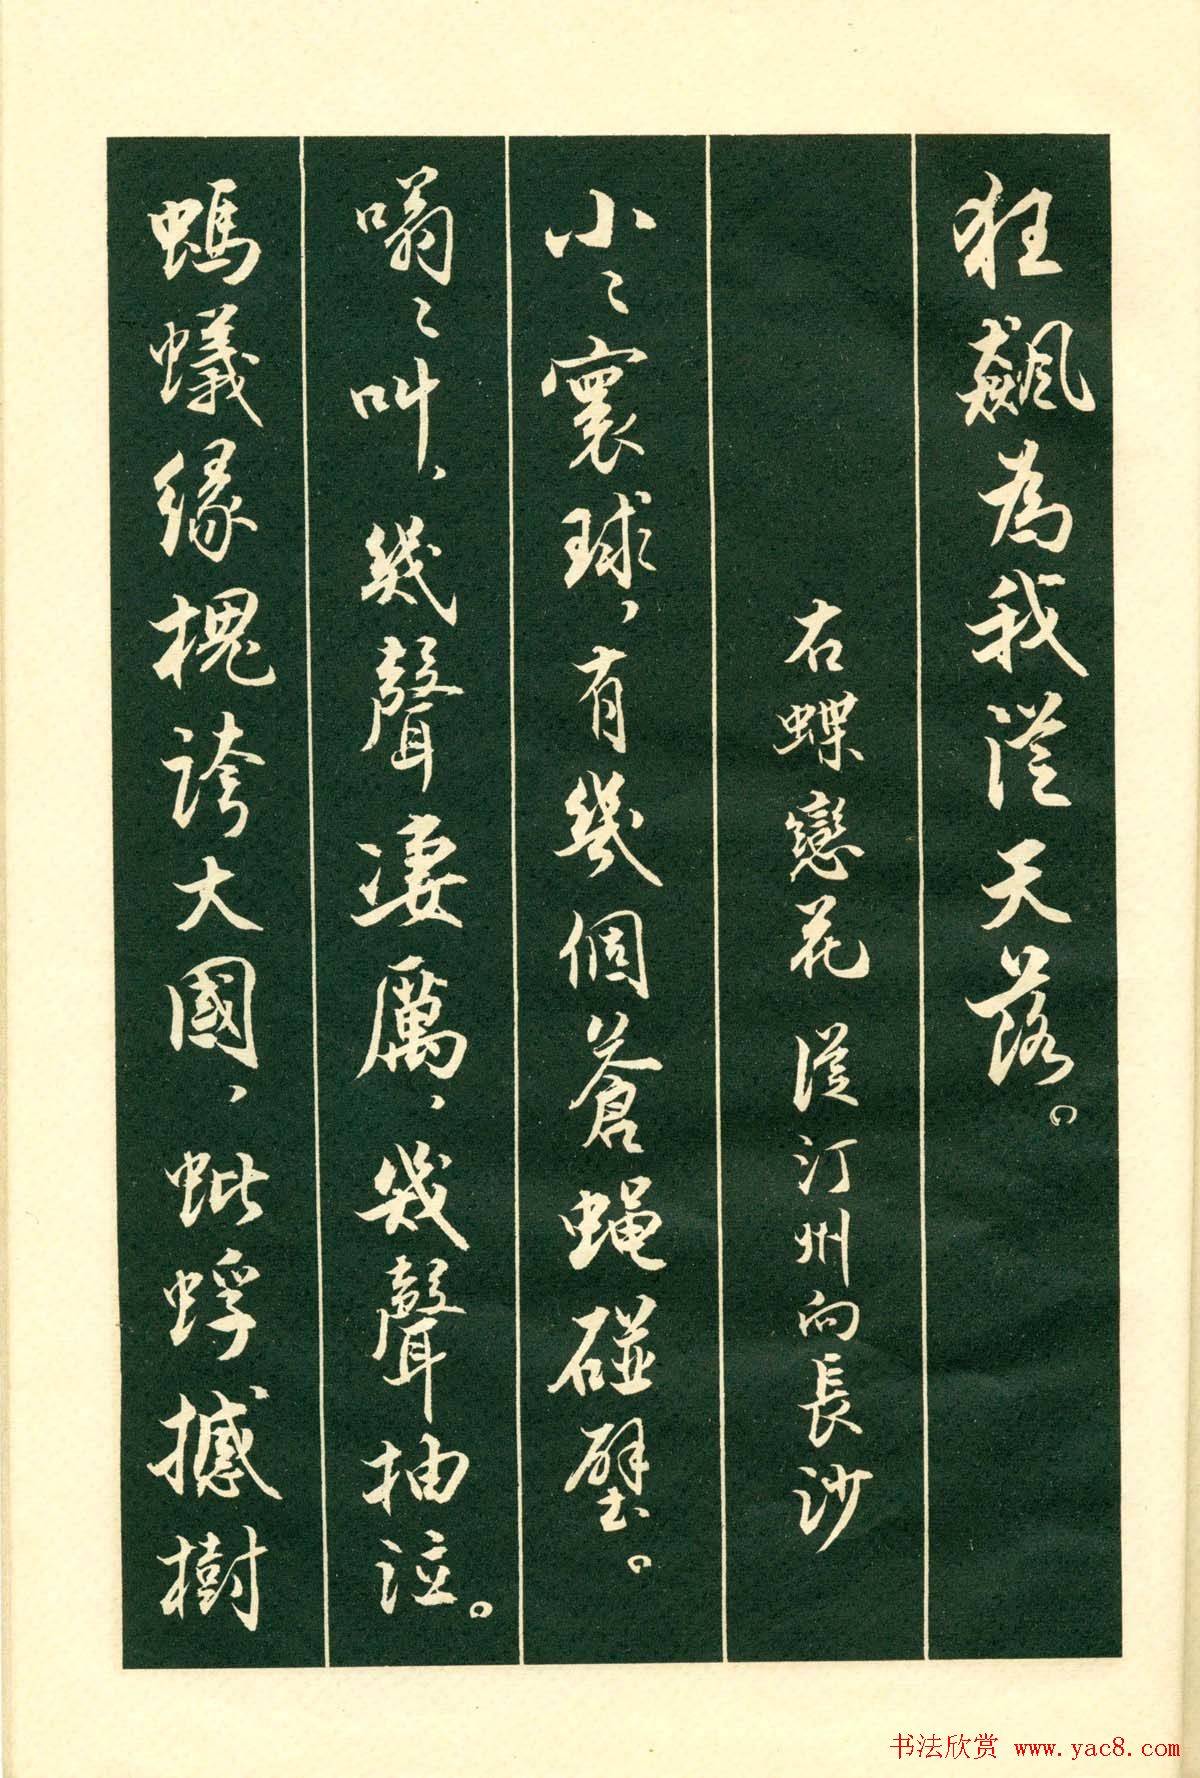 狂飆為我從天落。
右蝶戀花 從汀州向長沙
小〻寰球，有幾個蒼蠅碰壁。
嗡〻叫，幾聲凄厲，幾聲抽泣。
螞蟻緣槐誇大國，蚍蜉撼樹
书法欣赏 www.yac8.com